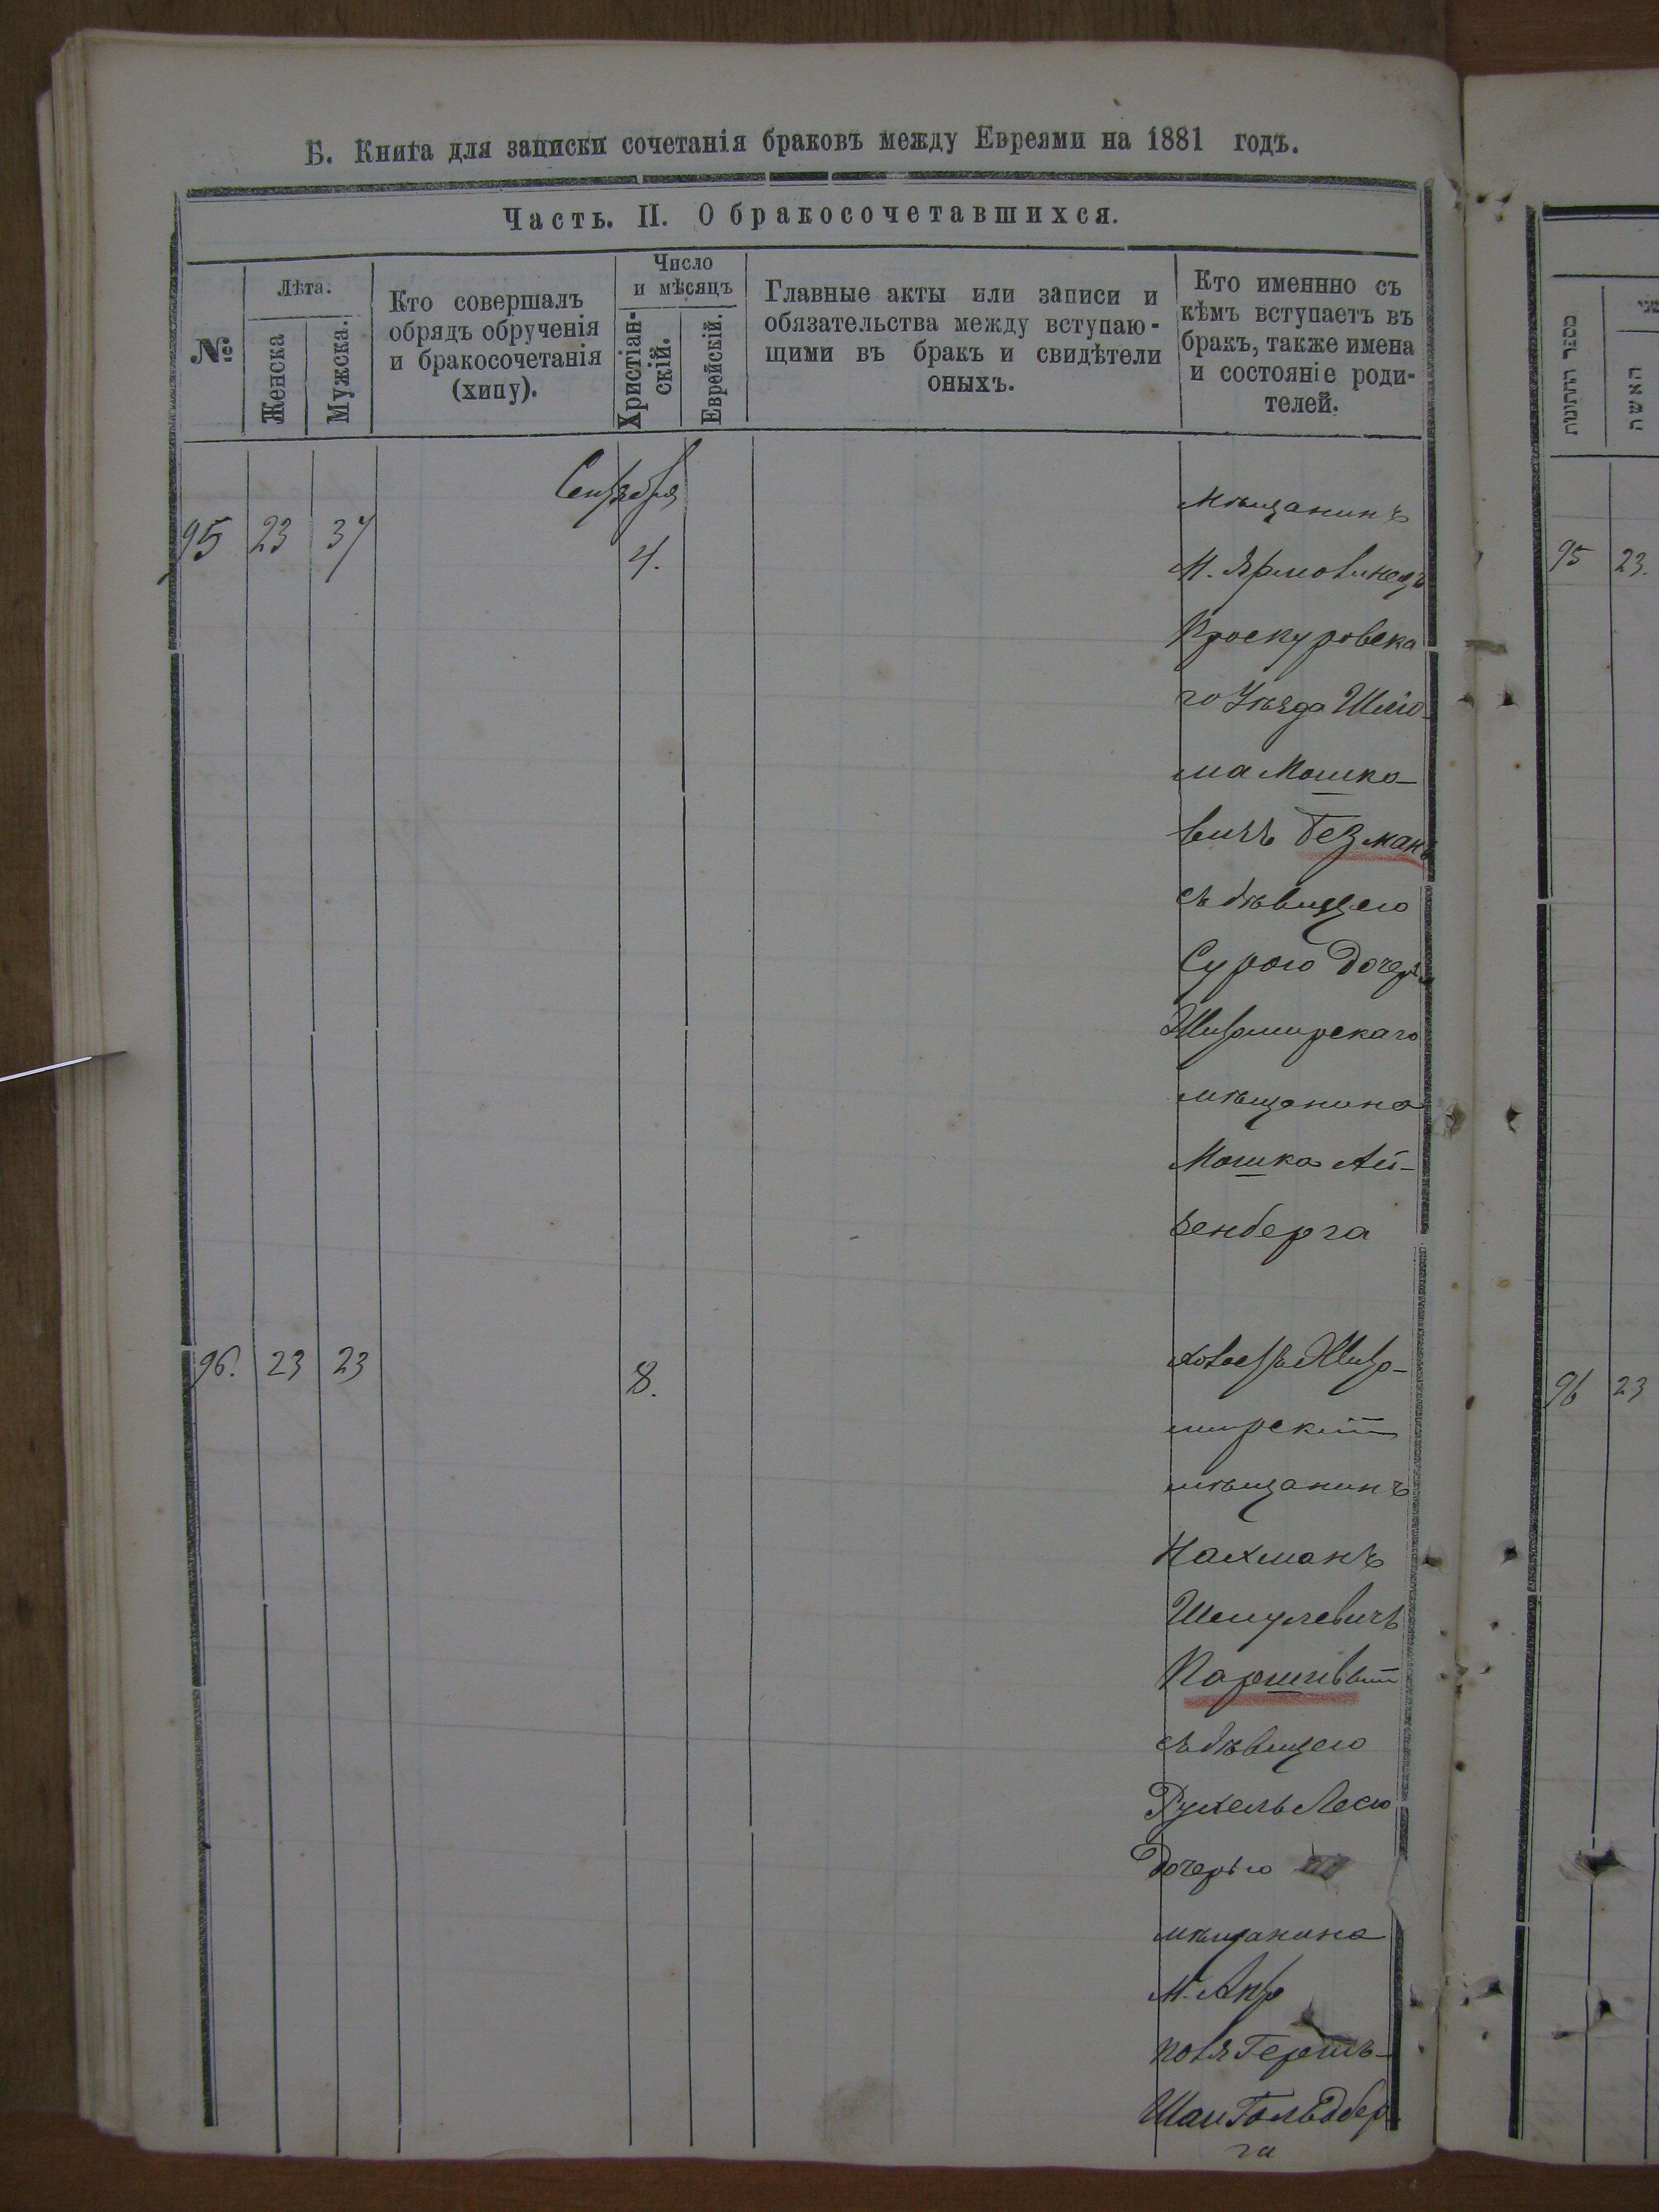 Б. Книга для записки сочетанія браковъ между Евреями на 1881 годъ.
Часть. II. О бракосочетавшихся.
№
Лѣта.
Женска
Мужска.
Кто совершалъ
обрядъ обрученія
и бракосочетанія
(хипу).
Число
и мѣсяцъ
Христіан-
скій.
Еврейскій.
Главные акты или записи и
обязательства между вступаю-
щими въ бракъ и свидѣтели
оныхъ.
Кто именнно съ
кѣмъ вступаетъ въ
бракъ, также имена
и состояніе роди-
телей.
מספר החתונות
האשה
Сентября
95 23 37 4.
Мѣщанинъ
М. Ярмолинецъ
Проскуровска
го Уѣзда Шлio-
ма Мошко-
вичъ Безманъ
съ дѣвицею
Сурою дочерью
Житомирскаго
мѣщанина
Мошка Ай-
зенберга
95 23.
96. 23 23 8.
Житo-
мирскій
мѣщанинъ
Нахманъ
Шмулевичъ
Паршивый
съ дѣвицею
Рухель Леею
дочерью
мѣщанина
М.
поля Гершъ-
Гольдбер
га
96 23